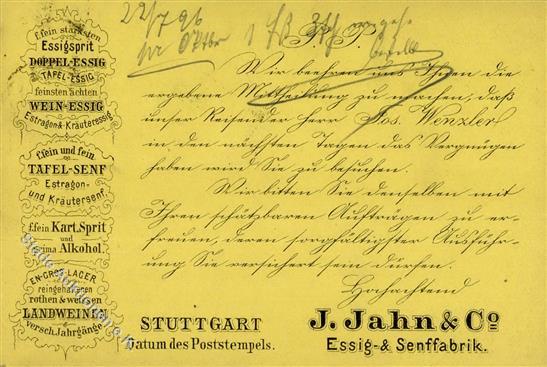 22/7 96
pr Oktbr
P. P.
f.fein stärksten
Essigsprit
DOPPEL-ESSIG
TAFEL-ESSIG
feinsten ächten
WEIN-ESSIG
Estragon & Kräuteressig
f.fein und fein.
TAFEL-SENF
Estragon-
und Kräutersenf.
f.fein Kart.Sprit
und
prima Alkohol.
EN-GROS-LAGER
reingehaltenen
rothen & weissen
LANDWEINEN
versch. Jahrgänge
Wir beehren uns Ihnen die
ergebene Mittheilung zu machen, daß
unser Reisender Herr Jos. Wenzler
in den nächsten Tagen das Vergnügen
haben wird Sie zu besuchen.
Wir bitten Sie denselben mit
Ihren schätzbaren Aufträgen zu er-
freuen, deren sorgfältigster Ausführ-
ung Sie versichert sein dürfen.
Hochachtend
STUTTGART
Datum des Poststempels.
J. Jahn & Co
Essig- & Senffabrik.